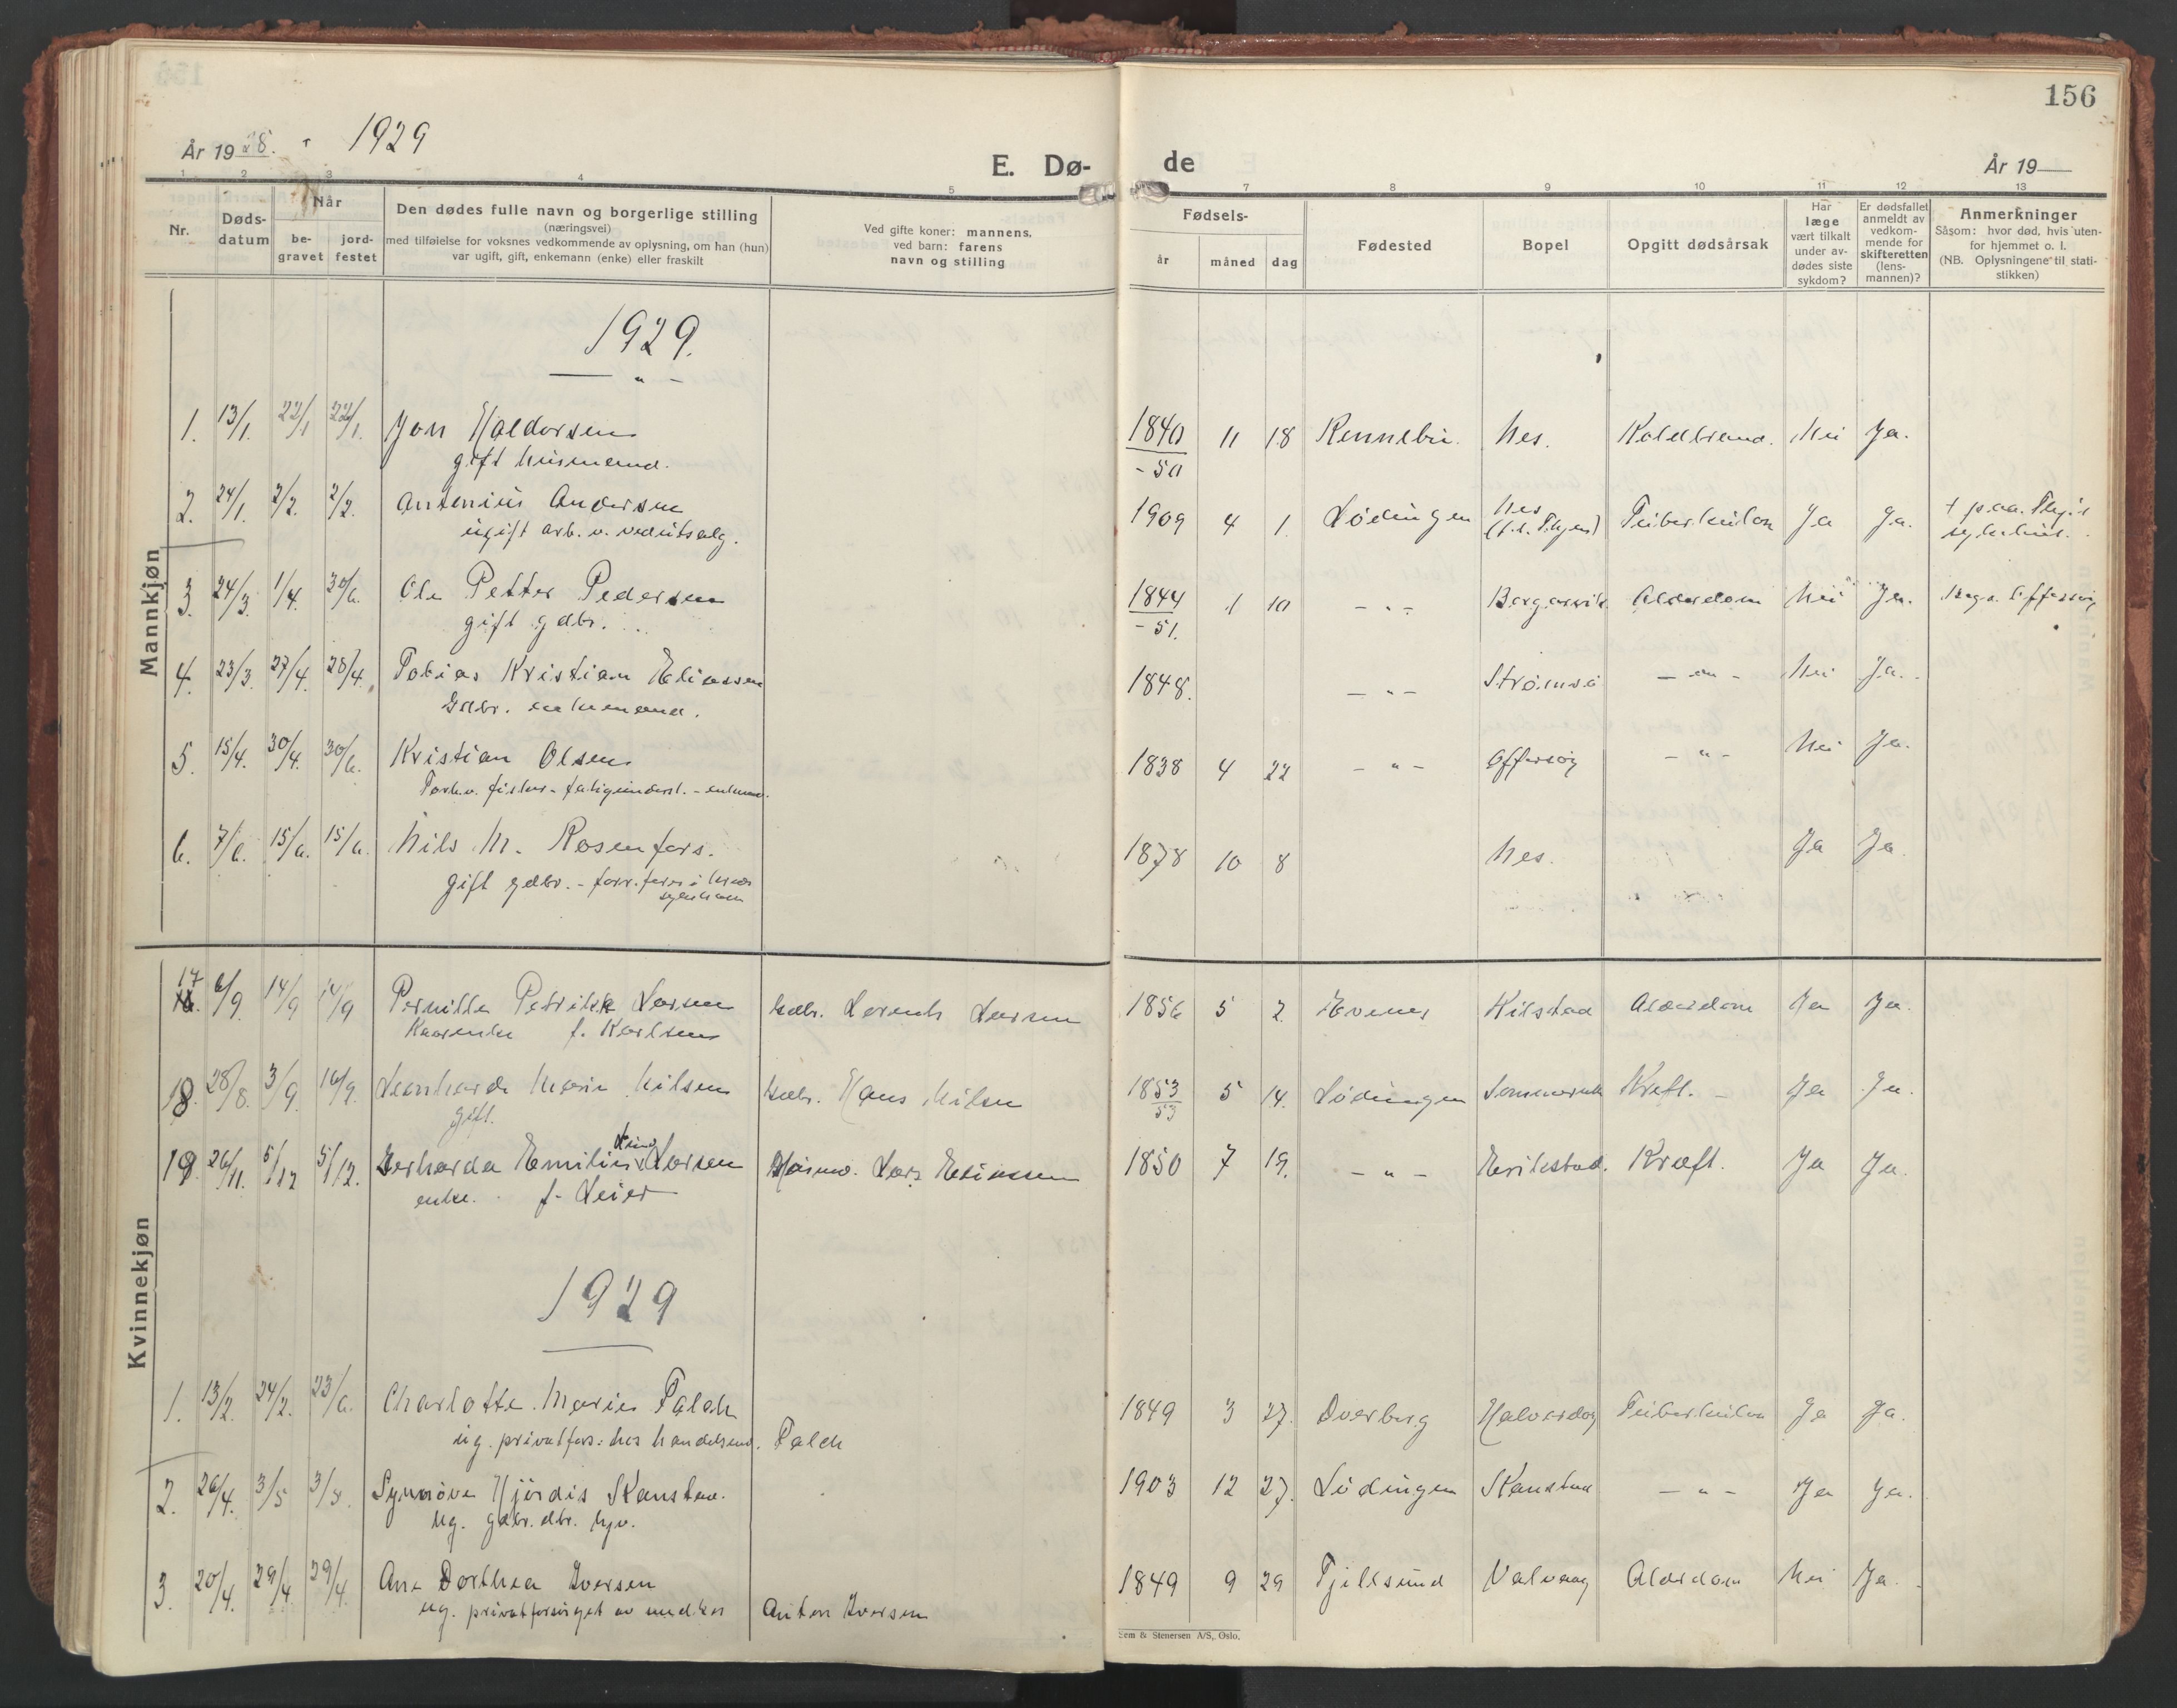 156
År 1928. 1929
E. Dø- de
År 19
1 2 3 4 5 7 8 9 10 11 12 13
Nr.
Døds-
datum
Når
be-
gravet
jord-
festet
Den dødes fulle navn og borgerlige stilling
(næringsvei)
med tilføielse for voksnes vedkommende av oplysning, om han (hun)
var ugift, gift, enkemann (enke) eller fraskilt
Ved gifte koner: mannens,
ved barn: farens
navn og stilling
Fødsels-
år måned dag
Fødested
Bopel
Opgitt dødsårsak
Har
læge
vært tilkalt
under av-
dødes siste
sykdom?
Er dødsfallet
anmeldt av
vedkom-
mende for
skifteretten
(lens-
mannen)?
Anmerkninger
Såsom: hvor død, hvis uten-
for hjemmet o. l.
(NB. Oplysningene til stati-
stikken)
Mannkjøn
1929.
— " —
1. 13/1. 22/1 22/1. Jon Haldorsen 1840 11 18 Rennebu. Nes. Koldbrand. Nei Ja.
gift husmand. - 50
2. 24/1. 2/2. 2/2. Antonius Andersen 1909 4 1. Lødingen Nes Tuberkulose Ja Ja.
ugift arb. v. vedutsalg. sykehus.
3. 24/3. 1/4. 30/6. Ole Petter Pedersen 1844 1 10 — " — Bergsvik Alderdom Nei Ja. Offersøy
gift gdbr. - 51.
4. 23/3. 27/4. 28/4. Tobias Kristian Eliassen 1848. — " — — " — Nei Ja.
Gdbr. enkemand.
5. 15/4. 30/4. 30/6. Kristian Olsen 1838 4 22 — " — Offersøy — " — Nei Ja.
fisker - fattigunderst. - enkem.
6. 7/6. 15/6. 15/6. Nils M. Rosenfors. 1878 10 8 Nes. Ja Ja.
gift gdbr. - forr.
Kvinnekjøn
17 6/9. 14/9 14/9 Pernille Petrikke Larsen Gdbr. Lorents Larsen 1856 5 2. Evenes Kilstad Alderdom Ja Ja.
f. Karlsen
18. 28/8. 3/9. 16/9. Leonharde Marie Nilsen Gdbr. Hans Nilsen 1853 5 14. Lødingen Kreft. Ja Ja.
gift. 53
19. 26/11. 5/12 5/12. Gerharda Emilie Larsen Husm. Lars Eliassen 1850 7 19. — " — Erikstad. Kræft. Ja Ja.
enke. f. Leier
1929
1. 13/2. 24/2. 23/6. Charlotte Marie Falch 1849 3 27. Dverberg Tuberkulose Ja Ja.
ug. privatfors: hos handelsm. Falch
2. 26/4. 3/5 3/5. Synnøve Hjørdis Kanstad. 1903 12 27. Lødingen Kanstad — " — Ja Ja.
ug. gdbr. dtr. hjv.
3. 20/4. 29/4 29/4. Ane Dorthea Iversen 1849 9 29 Tjeldsund Valvaag Alderdom Nei Ja.
ug. privatforsørget av Anton Iversen
Sem & Stenersen A/S, Oslo.